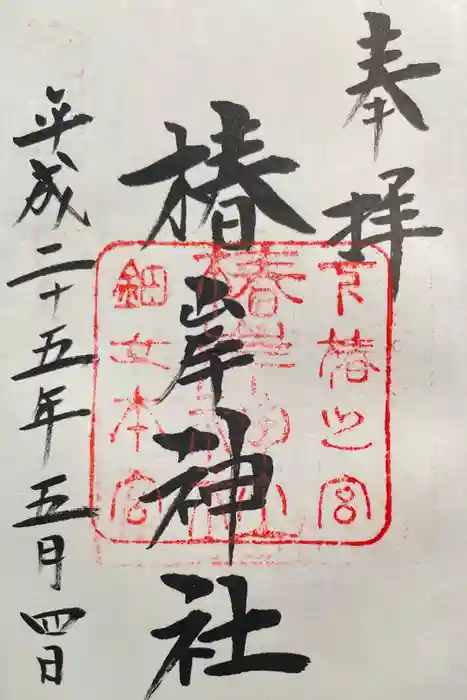 奉拝
椿岸神社
平成二十五年五月四日
下椿之宮
椿岸神社
鈿女本宮